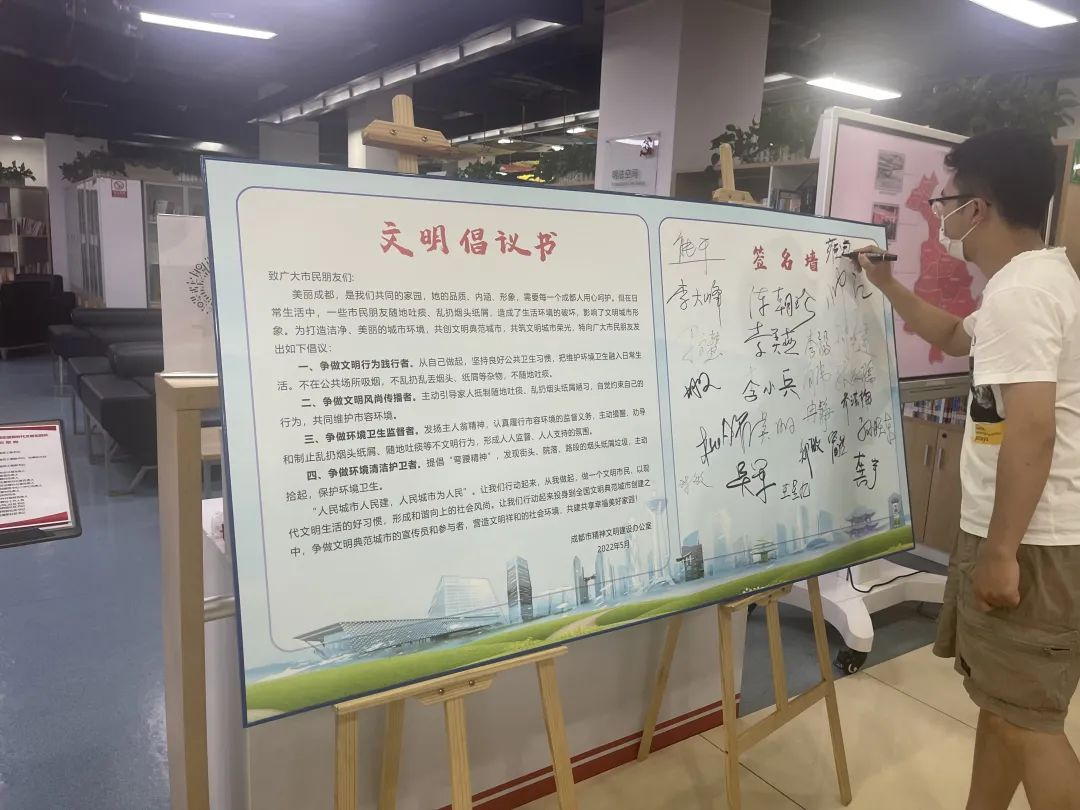 文明倡议书
致广大市民朋友们：
美丽成都，是我们共同的家园，她的品质、内涵、形象，需要每一个成都人用心呵护。但在日
常生活中，一些市民朋友随地吐痰、乱扔烟头纸屑，造成了生活环境的破坏，影响了文明城市形
象。为打造洁净、美丽的城市环境，共创文明典范城市，共筑文明城市荣光，特向广大市民朋友发
出如下倡议：
一、争做文明行为践行者。从自己做起，坚持良好公共卫生习惯，把维护环境卫生融入日常生
活。不在公共场所吸烟，不乱扔乱丢烟头、纸屑等杂物，不随地吐痰。
二、争做文明风尚传播者。主动引导家人抵制随地吐痰、乱扔烟头纸屑陋习，自觉约束自己的
行为，共同维护市容环境。
三、争做环境卫生监督者。发扬主人翁精神，认真履行市容环境的监督义务，主动提醒、劝导
和制止乱扔烟头纸屑、随地吐痰等不文明行为，形成人人监督、人人支持的氛围。
四、争做环境清洁护卫者。提倡“弯腰精神”，发现街头、院落、路段的烟头纸屑垃圾，主动
拾起，保护环境卫生。
“人民城市人民建，人民城市为人民”。让我们行动起来，从我做起，做一个文明市民，以现
代文明生活的好习惯，形成和谐向上的社会风尚。让我们行动起来投身到全国文明典范城市创建之
中，争做文明典范城市的宣传员和参与者，营造文明祥和的社会环境，共建共享幸福美好家园！
成都市精神文明建设办公室
2022年5月
签名墙
李大峰
陈朝珍
李美燕
李小兵
冉静